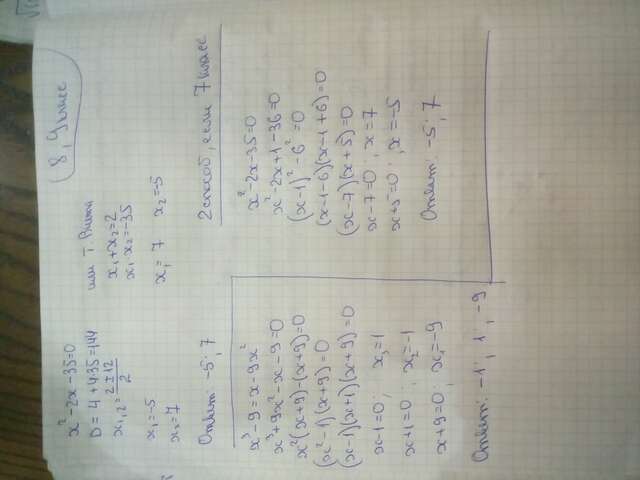 8, 9 класс
x² - 2x - 35 = 0
D = 4 + 4·35 = 144
x₁,₂ = (2 ± 12)/2
x₁ = -5
x₂ = 7
Ответ: -5; 7
или т. Виета
x₁ + x₂ = 2
x₁·x₂ = -35
x₁ = 7 x₂ = -5
2 способ, если 7 класс
x² - 2x - 35 = 0
x² - 2x + 1 - 36 = 0
(x - 1)² - 6² = 0
(x - 1 - 6)(x - 1 + 6) = 0
(x - 7)(x + 5) = 0
x - 7 = 0; x = 7
x + 5 = 0; x = -5
Ответ: -5; 7
x³ - 9 = x - 9x²
x³ + 9x² - x - 9 = 0
x²(x + 9) - (x + 9) = 0
(x² - 1)(x + 9) = 0
(x - 1)(x + 1)(x + 9) = 0
x - 1 = 0; x₃ = 1
x + 1 = 0; x₂ = -1
x + 9 = 0; x₁ = -9
Ответ: -1; 1; -9